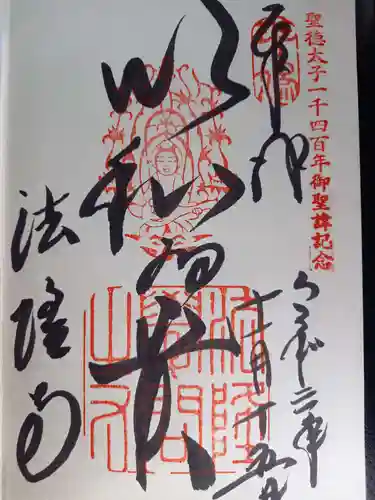 聖徳太子一千四百年御聖諱記念
奉拝
令和三年
十一月十五日
以和為貴
法隆寺